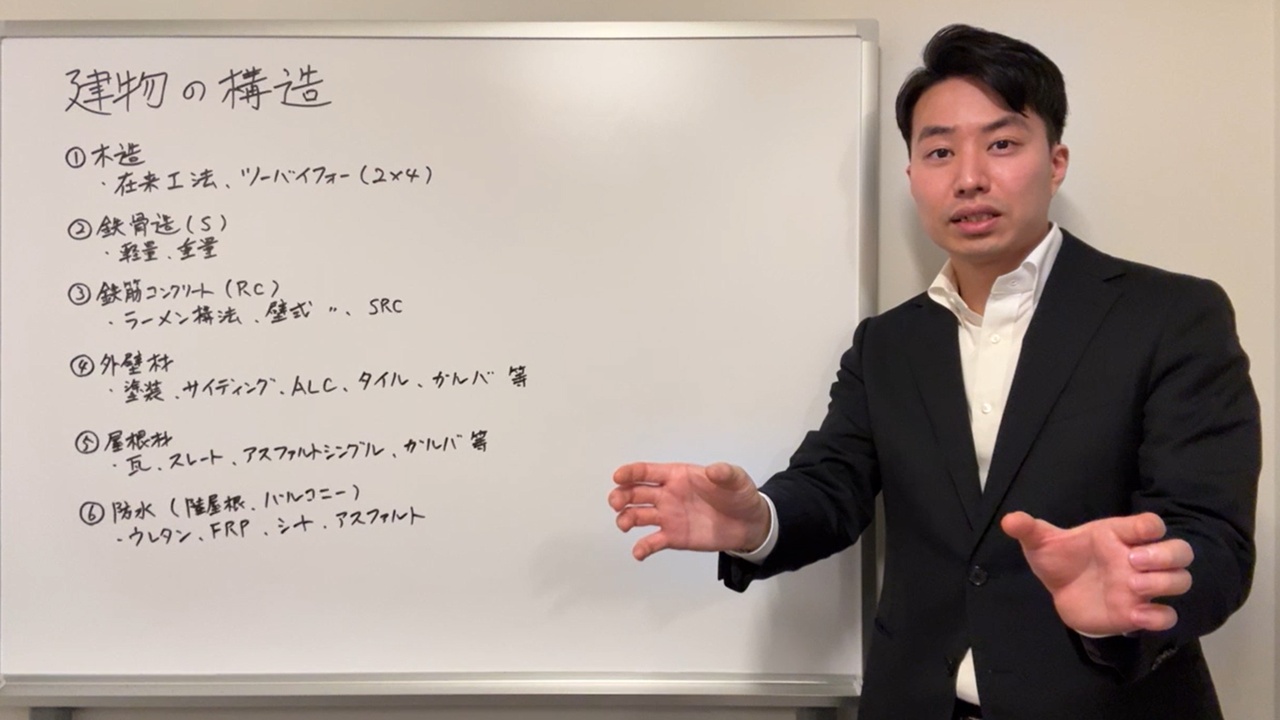 建物の構造
① 木造
・在来工法、ツーバイフォー(2×4)
② 鉄骨造(S)
・軽量、重量
③ 鉄筋コンクリート(RC)
・ラーメン構法、壁式 〃、SRC
④ 外壁材
・塗装、サイディング、ALC、タイル、ガルバ 等
⑤ 屋根材
・瓦、スレート、アスファルトシングル、ガルバ 等
⑥ 防水(陸屋根、バルコニー)
・ウレタン、FRP、シート、アスファルト